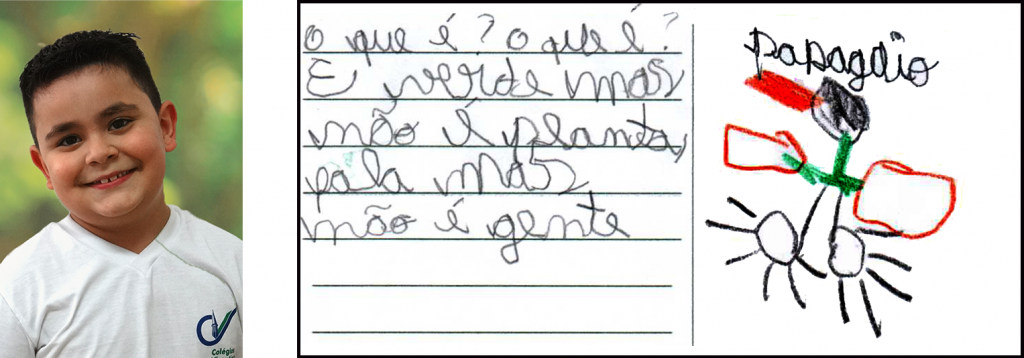 o que é? o que é?
E verde mas
não é planta,
fala mas
não é gente
papagaio
Colégio